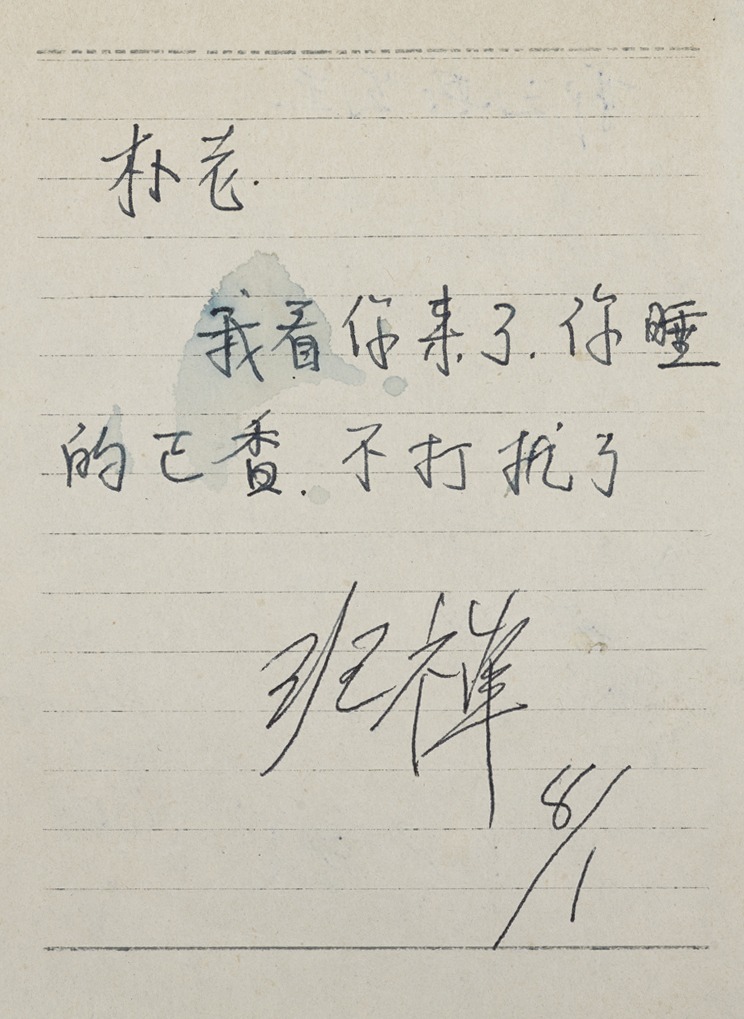 朴老.
我看你来了.你睡
的已香.不打扰了
班禅
8/1